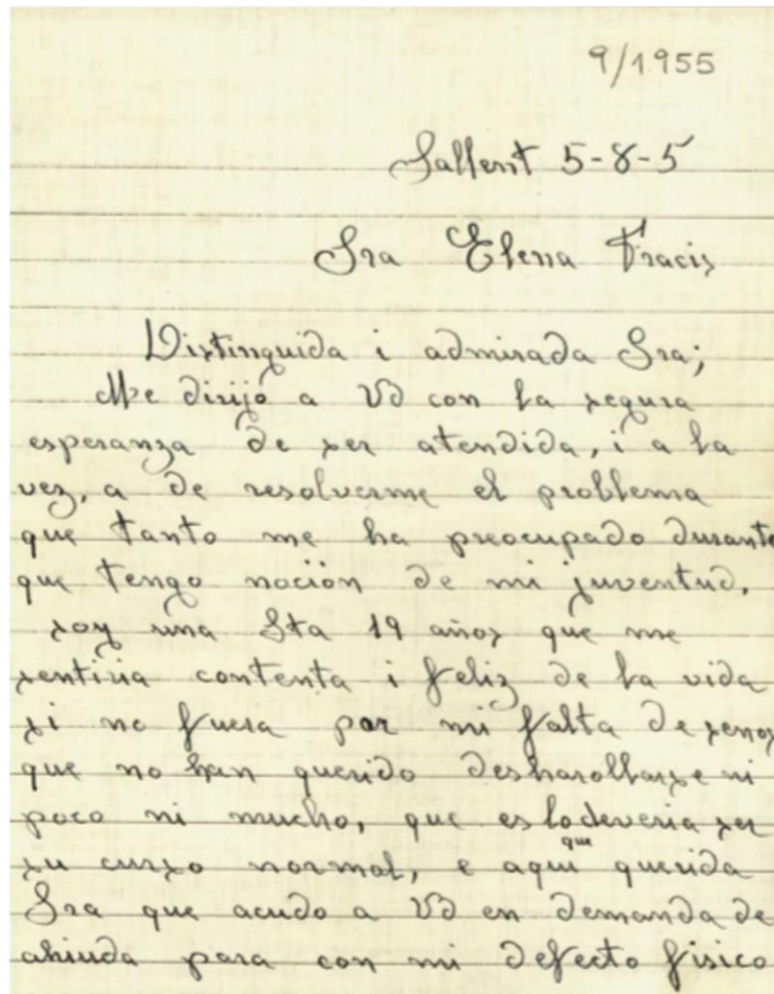 9/1955
Sallent 5-8-5
Sra Elena Fracis
Distinguida i admirada Sra;
Me dirijo a Vd con la segura
esperanza de ser atendida, i a la
vez, a de resolverme el problema
que tanto me ha preocupado durante
que tengo noción de mi juventud.
soy una Sta 19 años que me
sentiria contenta i feliz de la vida
si no fuera por mi falta de senos
que no han querido desharollarse ni
poco ni mucho, que es lo deveria ser
que
su curso normal, e aqui querida
Sra que acudo a Vd en demanda de
ahiuda para con mi defecto fisico